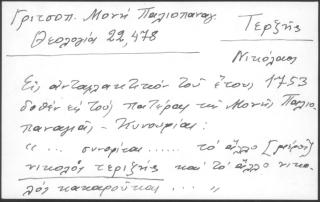 Γριτσοπ. Μονή Παλιοπαναγ.
Τερζής
Θεολογία 22, 478
Νικόλαος
Εἰς ἀνταλλακτικόν τοῦ ἔτους 1753
δοθέν εἰς τούς πατέρας τῆς Μονῆς Παλιο-
παναγιᾶς - Κυνουρίας:
" ... συνορίται ...... τό ἄλλο [μικρό]
νικολός τεριζης καί τό ἄλλο νικο-
λός κακαρούκαι ... "